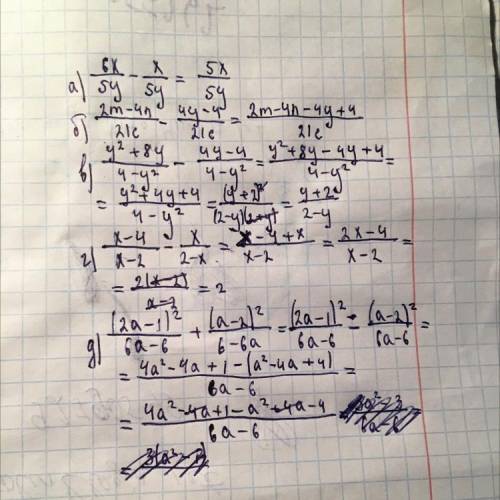 а) 6x/5y - x/5y = 5x/5y
б) 2m-4n/21c - 4y-4/21c = 2m-4n-4y+4/21c
в) y²+8y/4-y² - 4y-4/4-y² = y²+8y-4y+4/4-y² =
= y²+4y+4/4-y² = (y+2)²/(2-y)(2+y) = y+2/2-y
г) x-4/x-2 - x/2-x = x-4+x/x-2 = 2x-4/x-2 =
= 2(x-2)/x-2 = 2
д) (2a-1)²/6a-6 + (a-2)²/6-6a = (2a-1)²/6a-6 - (a-2)²/6a-6 =
= 4a²-4a+1-(a²-4a+4)/6a-6 =
= 4a²-4a+1-a²+4a-4/6a-6